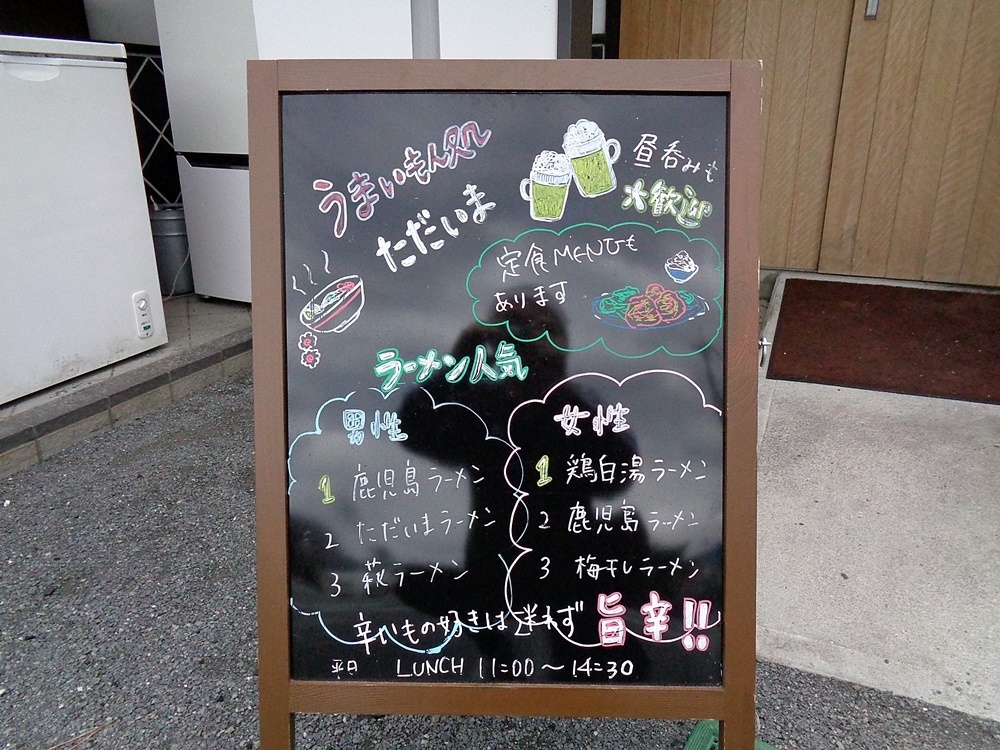 うまいもん処
ただいま
昼呑みも
大歓迎
定食MENUも
あります
ラーメン人気
男性
1 鹿児島ラーメン
2 ただいまラーメン
3 萩ラーメン
女性
1 鶏白湯ラーメン
2 鹿児島ラーメン
3 梅干しラーメン
辛いもの好きは迷わず 旨辛!!
平日 LUNCH 11:00～14:30